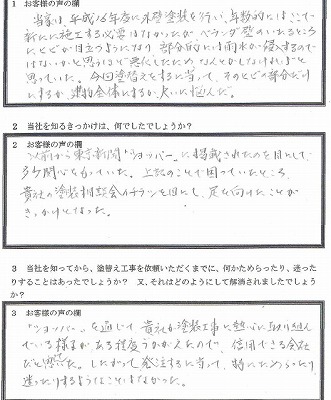 1　お客様の声の欄
当家は、平成16年度に外壁塗装を行い、年数的にはここで
新たに施工する必要はなかったが、ベランダ壁のいたるところ
にヒビが目立つようになり、部分的には雨水が侵入するので
はないかと思うほど悪化したため、なんとかしなければと
思っていた。今回塗替えをするに当って、そのヒビの部分だけ
にするか、建物全体にするか、大いに悩んだ。
2　当社を知るきっかけは、何でしたでしょうか？
2　お客様の声の欄
以前から東京新聞「ショッパー」に掲載されたのを目にして、
多少関心をもっていた。上記のことで困っていたところ、
貴社の塗装相談会のチラシを目にし、足を向けたことが
きっかけとなった。
3　当社を知ってから、塗替え工事を依頼いただくまでに、何かためらったり、迷った
りすることはあったでしょうか？　又、それはどのようにして解消されましたでしょう
か？
3　お客様の声の欄
「ショッパー」を通じて貴社が塗装工事に熱心に取り組ん
でいる様子がある程度うかがえたので、信用できる会社
だと思った。したがって発注するに当って、特にためらったり
迷ったりするようなことはなかった。